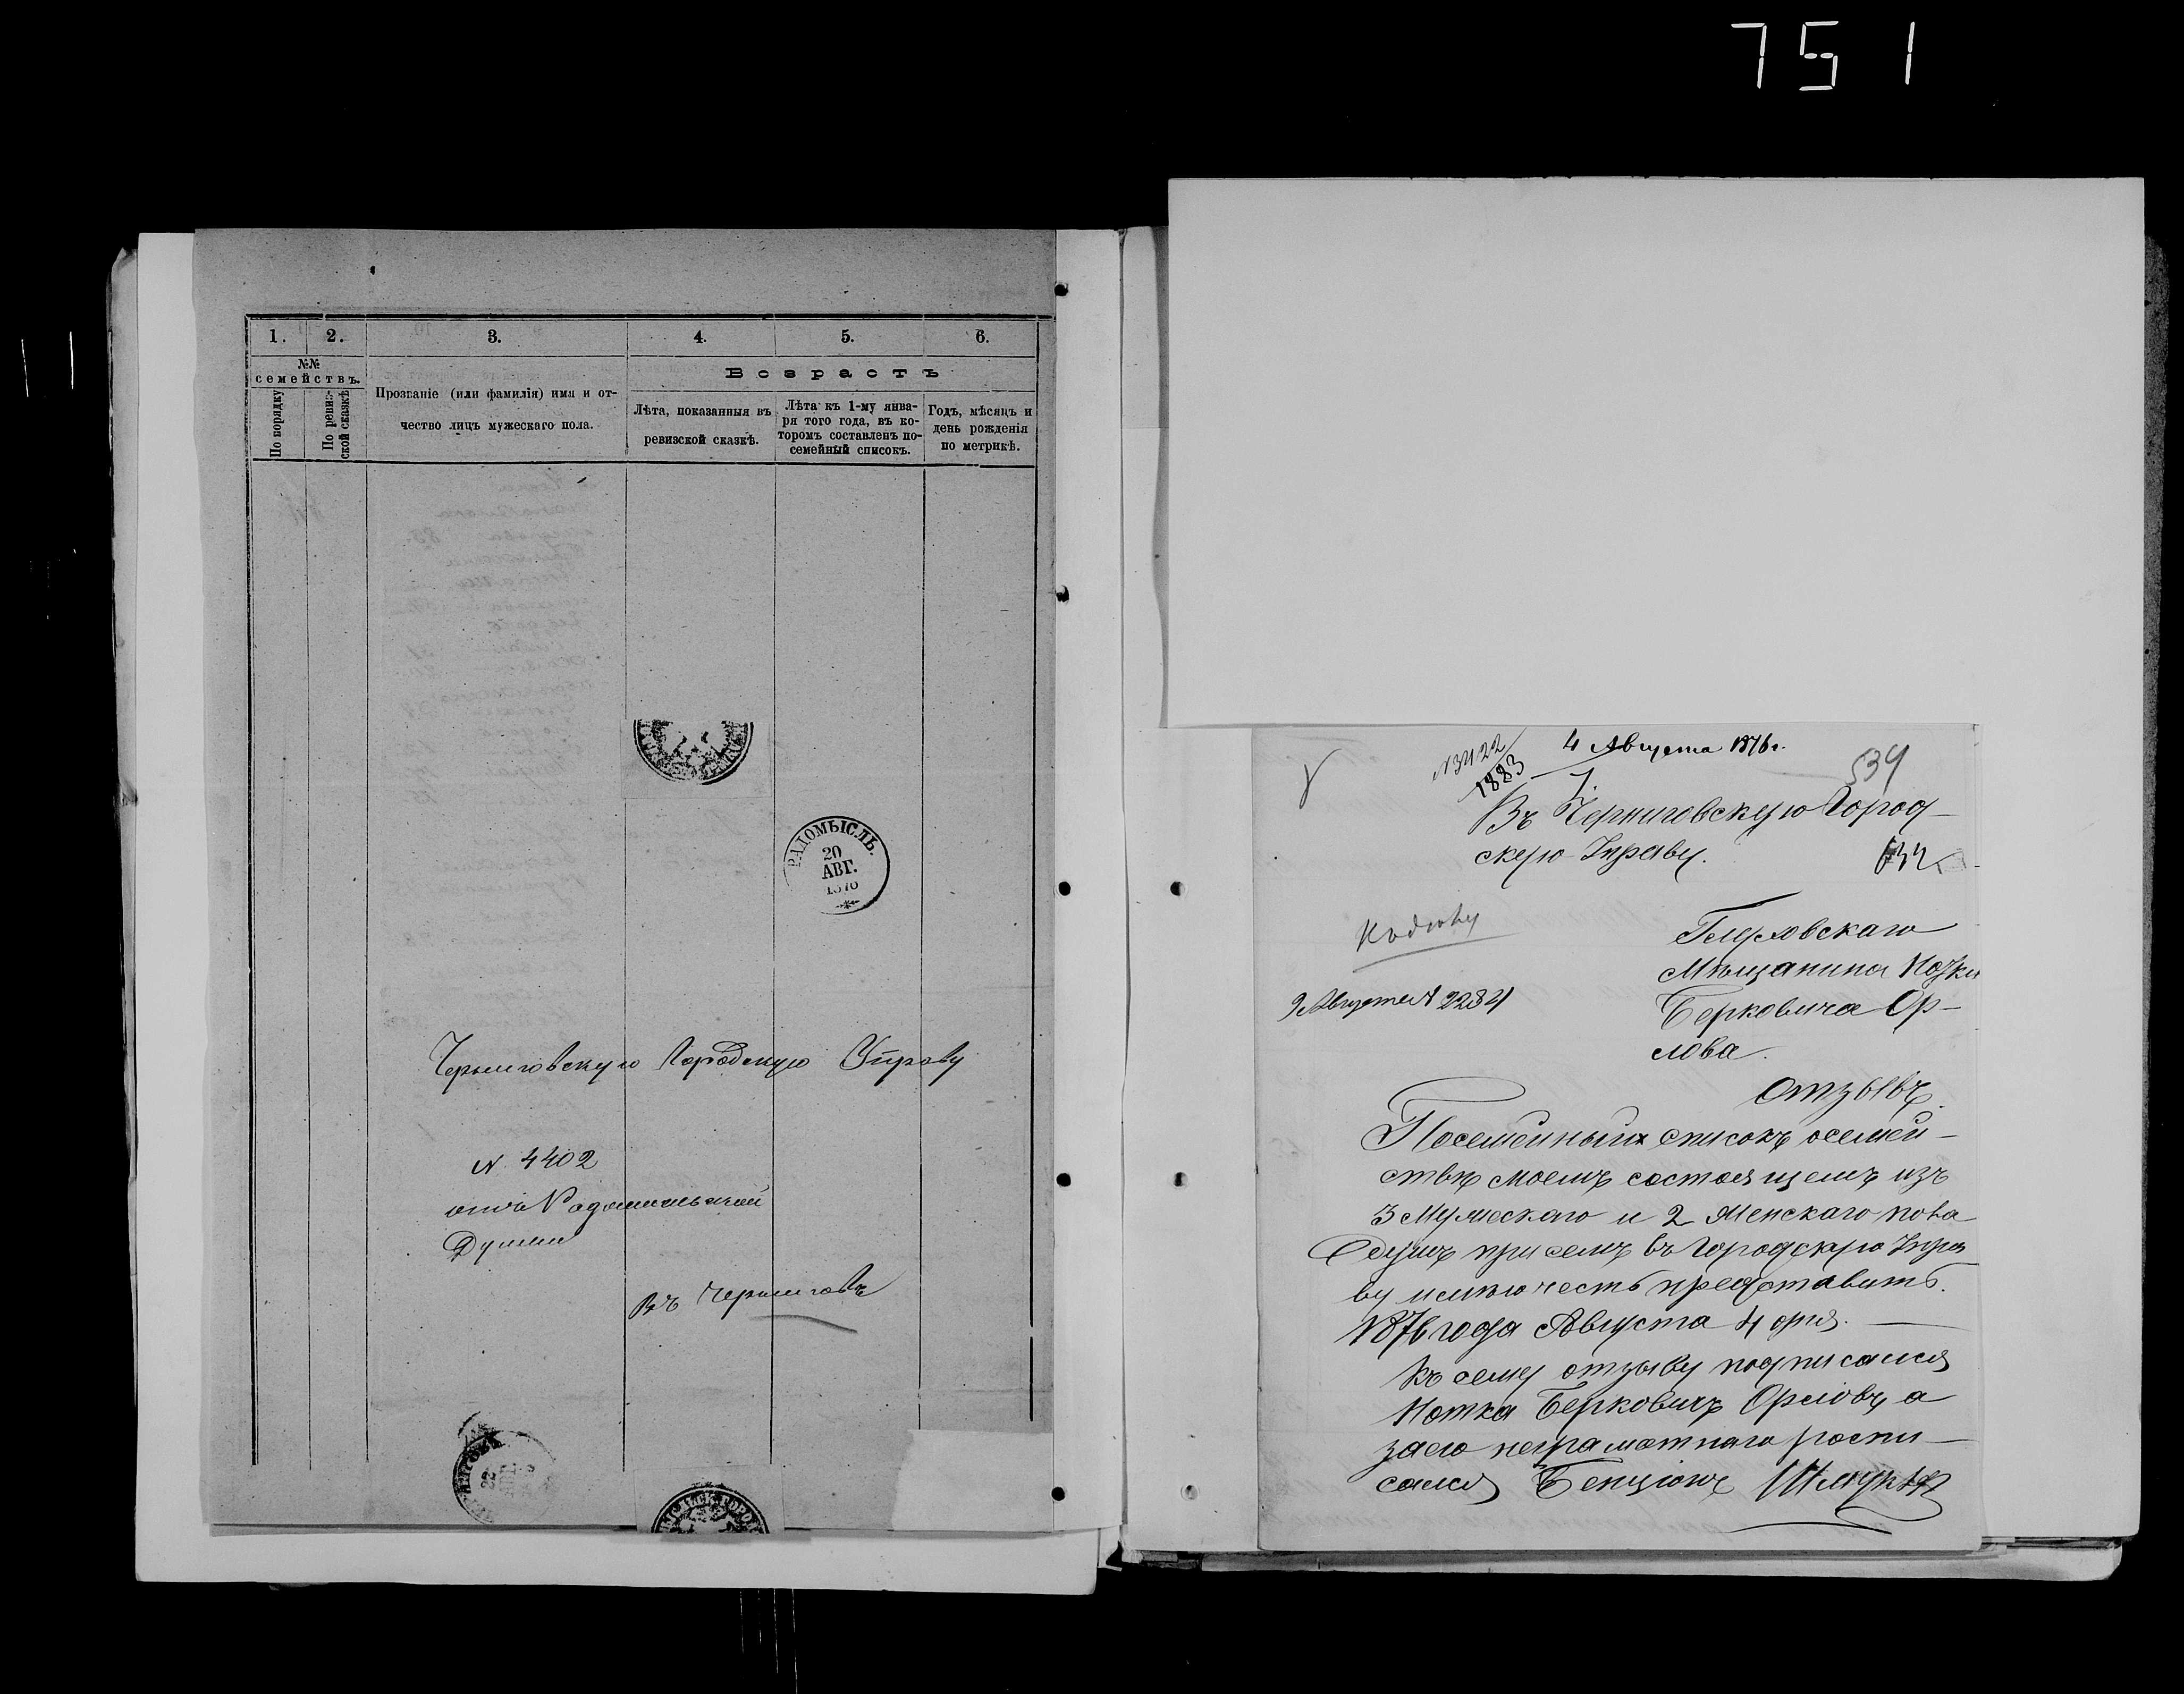 751
1. 2. 3. 4. 5. 6.
№№
семействъ.
Возрастъ
По порядку
По ревиз-
ской сказкѣ
Прозваніе (или фамилія) имя и от-
чество лицъ мужескаго пола.
Лѣта, показанныя въ
ревизской сказкѣ.
Лѣта къ 1-му янва-
ря того года, въ ко-
торомъ составленъ по-
семейный списокъ.
Годъ, мѣсяцъ и
день рожденія
по метрикѣ.
РАДОМЫСЛЬ.
20
АВГ.
1876
Черниговскую Городскую Управу
N 4402
отъ Радомысльской
Думы
Въ Черниговъ
22
4 Августа 1876 г.
N 3422
1883
534
Въ Черниговскую Город-
скую Управу.
632
Мѣщанина Нотки
9 Августа 2284
Берковича Ор-
лова.
Отзывъ.
Посемейный списокъ о семей-
ствѣ моемъ состоящемъ изъ
3 Мужескаго и 2 Женскаго пола
душъ при семъ въ Городскую Упра
ву имѣю честь представить.
1876 года Августа 4 дня.
Къ сему отзыву подписался
Нотка Берковичъ Орловъ, а
за его неграмотнаго распи-
сался Бенціонъ